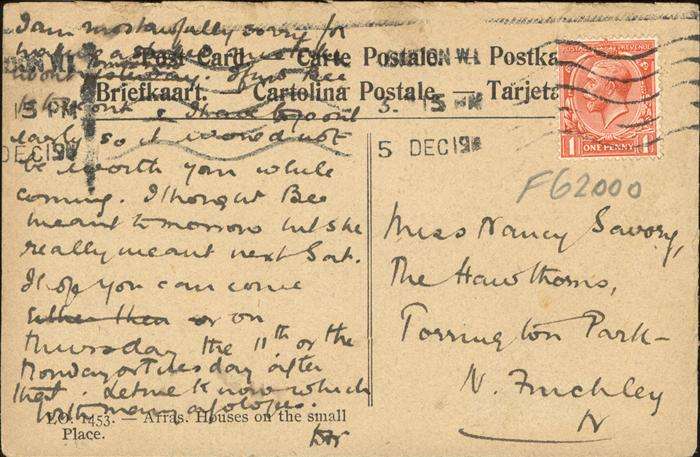 I am most awfully sorry for
making a
yesterday. I find Bee
is & I have to go out
early so it would not
be worth your while
coming. I thought Bee
meant tomorrow but she
really meant next Sat.
I hope you can come
either then or on
Thursday the 11th or the
Monday or Tuesday after
that. Let me know which
with many apologies.
Post Card — Carte Postale — Postka
Briefkaart. Cartolina Postale. — Tarjeta
LONDON W.1
3. 15 PM
5 DEC 19
15 PM
DEC 19
POSTAGE REVENUE
1 ONE PENNY 1
F62000
Miss Nancy Savory,
The Hawthorns,
Torrington Park –
N. Finchley
N
LO. 1453. — Arras. Houses on the small
Place.